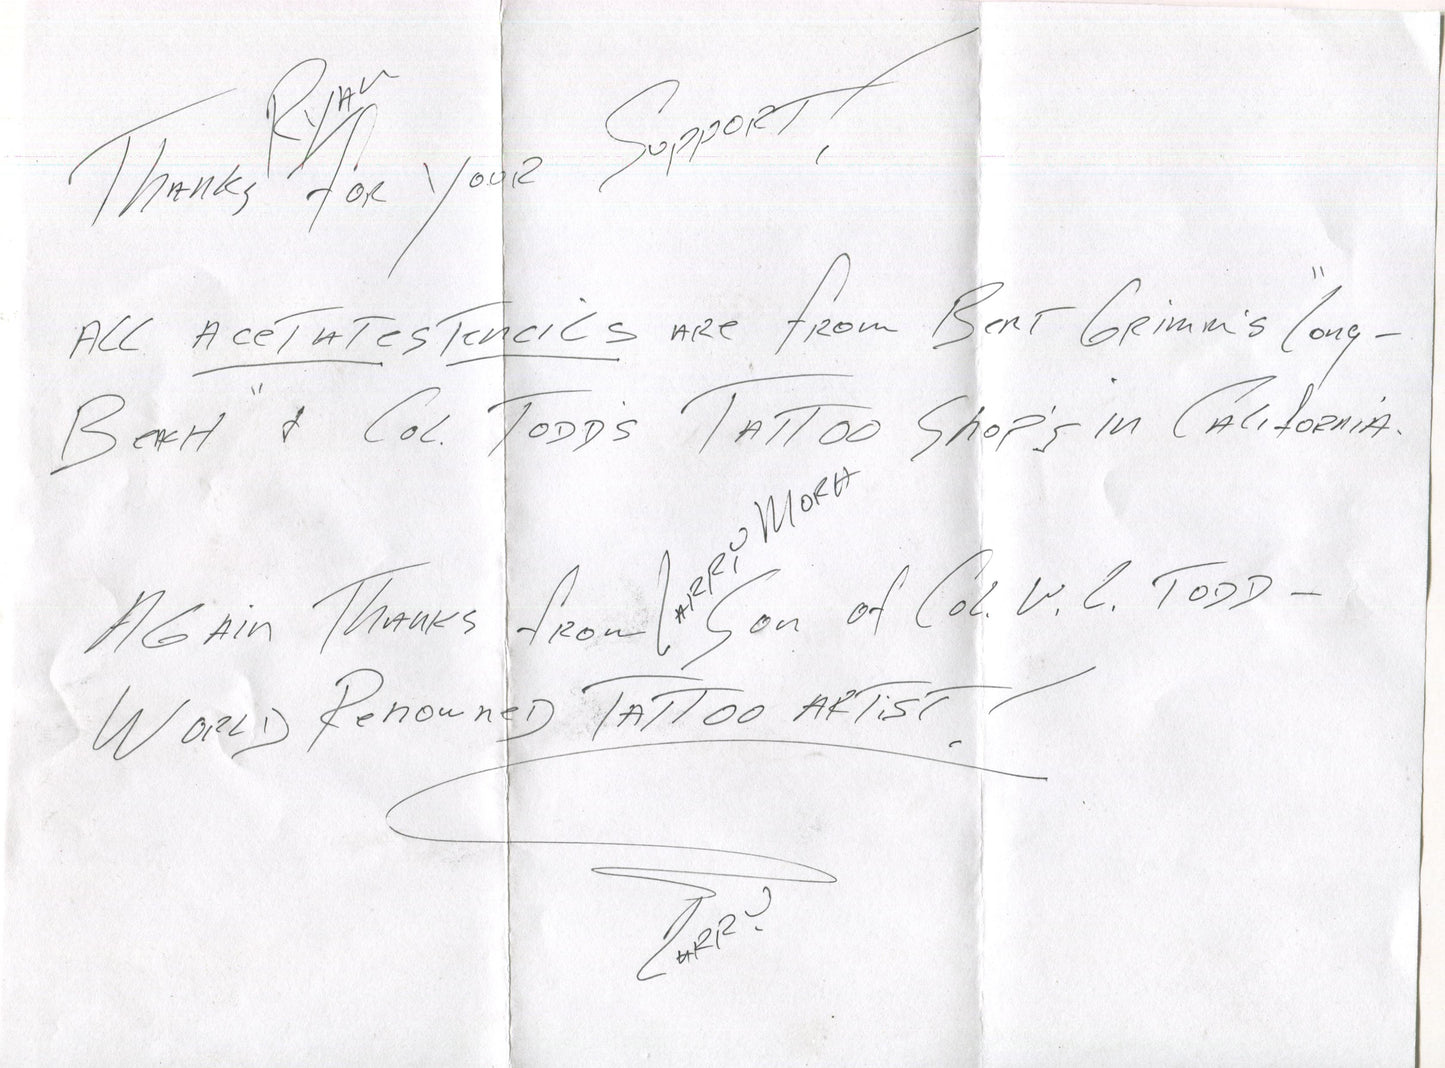 Ryan
Thanks for your Support!
All acetate stencils are from Bert Grimm's "Long-
Beach" & Col. Todd's Tattoo Shop's in California.
Larry Mora
Again Thanks from Son of Col. W. L. Todd -
World Renowned Tattoo artist!
Larry